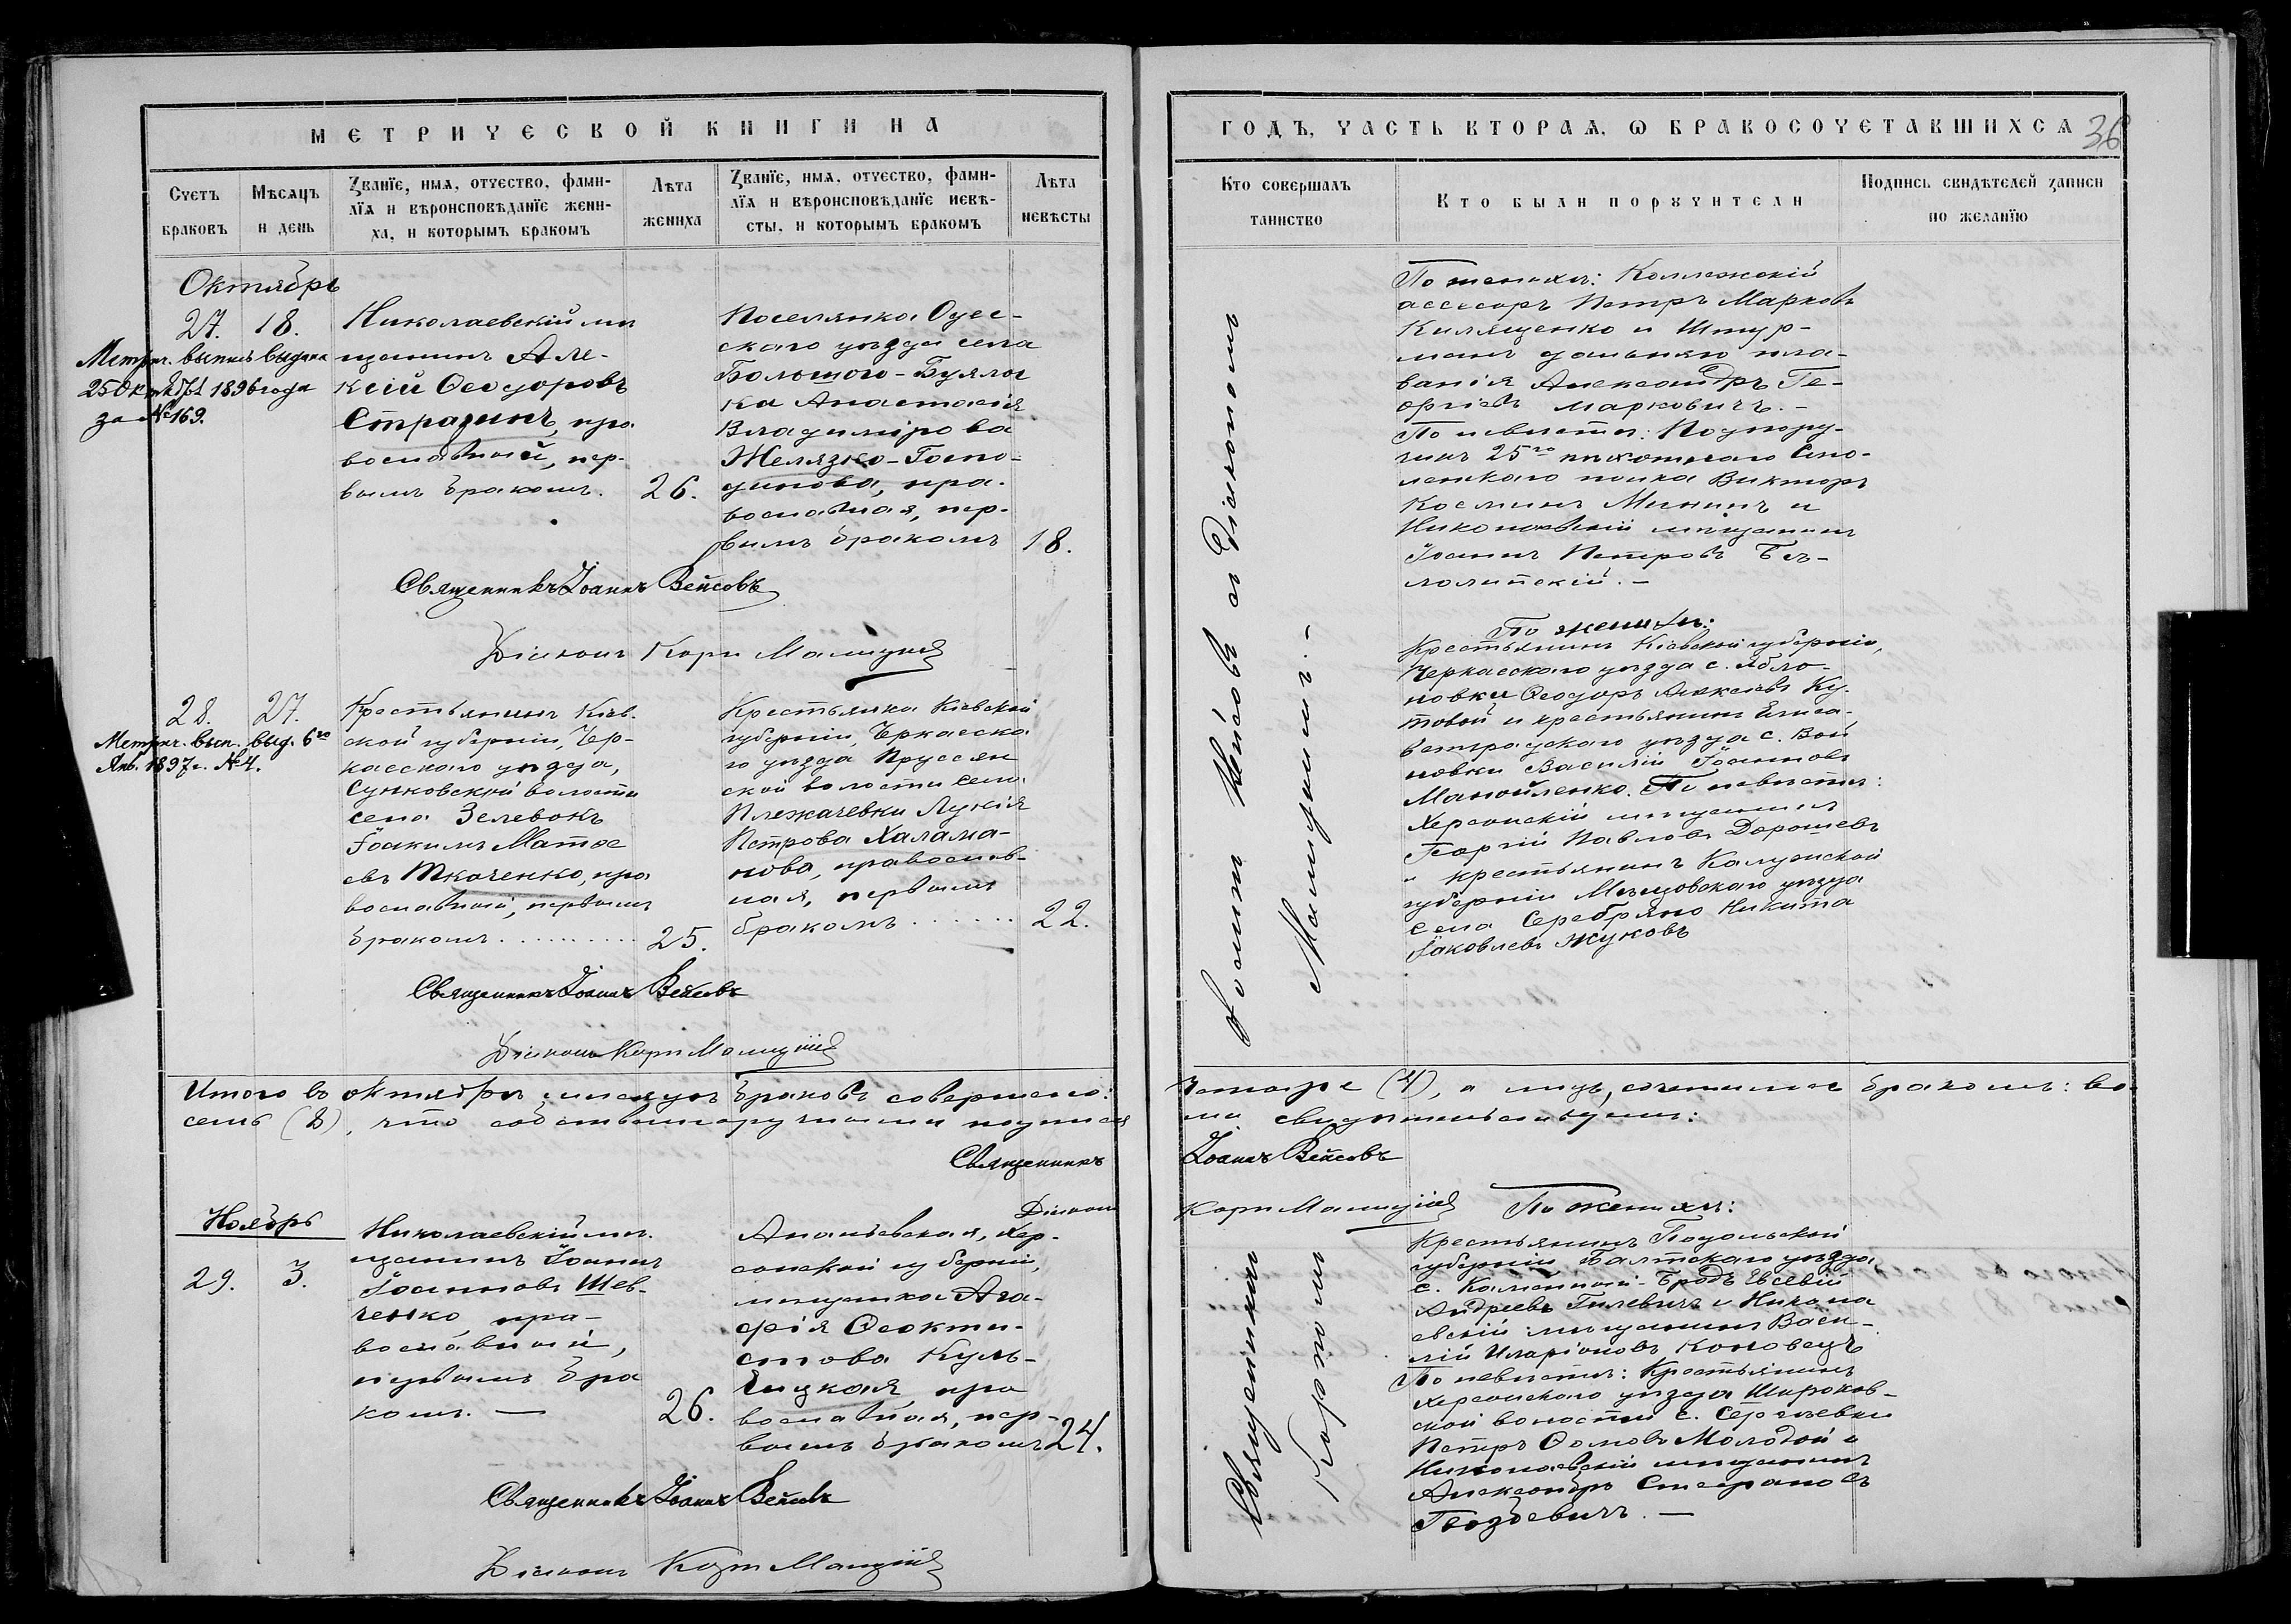 МЕТРИЧЕСКОЙ КНИГИ НА
Счетъ браковъ
Мѣсяцъ и день
Званїе, имя, отчество, фами-
лїя и вѣроисповѣданїе жени-
ха, и которымъ бракомъ
Лѣта жениха
Званїе, имя, отчество, фами-
лїя и вѣроисповѣданїе невѣ-
сты, и которымъ бракомъ
Лѣта невѣсты
Октябрь
27. 18.
Метрич. выпись выдана
25 Октября 1896 года
за № 169.
Николаевскій мѣ
щанинъ Але-
ксій Ѳеодоровъ
Страгинъ, пра
вославный, пер-
вымъ бракомъ.
26.
Поселянка Одес-
скаго уѣзда села
Большого-Буялы
ка Анастасія
Владимірова
Желязко-Госпо-
динова, пра-
вославная, пер-
вымъ бракомъ
18.
Священникъ Іоаннъ Вейсовъ
Діаконъ Карпъ Малицкій
28. 27.
Метрич. вып. выд. 6го
Янв. 1897 г. №4.
Крестьянинъ Кіев-
ской губерніи, Чер-
касскаго уѣзда,
Сунковской волости
села Зелевокъ
Іоакимъ Матѳе
евъ Ткаченко, пра
вославный, первымъ
бракомъ
25.
Крестьянка Кіевской
губерніи, Черкасска
го уѣзда Прусян
ской волости села
Плежачевки Лукія
Петрова Халама-
нова, православ-
ная, первымъ
бракомъ
22.
Священникъ Іоаннъ Вейсовъ
Діаконъ Карпъ Малицкій
Итого въ октябрѣ мѣсяцѣ браковъ совершено:
семь (8), что собственноручными подпися
Священникъ
Діаконъ
Ноябрь
29. 3.
Николаевскій мѣ-
щанинъ Іоаннъ
Іоанновъ Шев-
ченко, пра-
вославный,
первымъ бра
комъ. —
26.
Ананьевская, Хер-
сонской губерніи,
мѣщанка Ага-
фія Ѳеокти-
стова Куль-
бицкая, пра
вославная, пер-
вымъ бракомъ
24.
Священникъ Іоаннъ Вейсовъ
Діаконъ Карпъ Малицкій
ГОДЪ, ЧАСТЬ ВТОРАЯ, Ѡ БРАКОСОЧЕТАВШИХСЯ
36
Кто совершалъ таинство
Кто были поручители
Подпись свидѣтелей записи по желанїю
Іоаннъ Вейсовъ съ Діакономъ
Малицкимъ.-
По женихѣ: Коллежскій
ассесоръ Петръ Марковъ
Килященко и Штур-
манъ дальняго пла-
ванія Александръ Ге-
оргіевъ Марковичъ.-
По невѣстѣ: Подпору-
чикъ 25го пѣхотнаго Смо-
ленскаго полка Викторъ
Косминъ Мининъ и
Николаевскій мѣщанинъ
Іоаннъ Петровъ Бѣ-
лолипскій.-
По женихѣ:
Крестьянинъ Кіевской губерніи,
Черкасскаго уѣзда с. Ябло-
новки Ѳеодоръ Алексѣевъ Ку-
товой и крестьянинъ Елиса-
ветградскаго уѣзда с. Вои
новки Василій Іоанновъ
Манойленко. По невѣстѣ:
Херсонскій мѣщанинъ
Георгій Павловъ Дорошевъ
и крестьянинъ Калужской
губерніи Мещовскаго уѣзда
села Серебряно Никита
Іаковлевъ Жуковъ
четыре (4), а лицъ, сочетались бракомъ: во-
ми свидѣтельствуемъ:
Іоаннъ Вейсовъ
Карпъ Малицкій
Священникъ
Карпомъ
По женихѣ:
Крестьянинъ Подольской
губерніи Балтскаго уѣзда
с. Каменный-Бродъ Евсевій
Андреевъ Гилевичъ и Никола
евскій мѣщанинъ Васи-
лій Иларіоновъ Коновецъ
По невѣстѣ: Крестьянинъ
Херсонскаго уѣзда Широков-
ской волости с. Сергѣевки
Петръ Ѳомовъ Молодой и
Николаевскій мѣщанинъ
Александръ Стефановъ
Гвоздевичъ. —